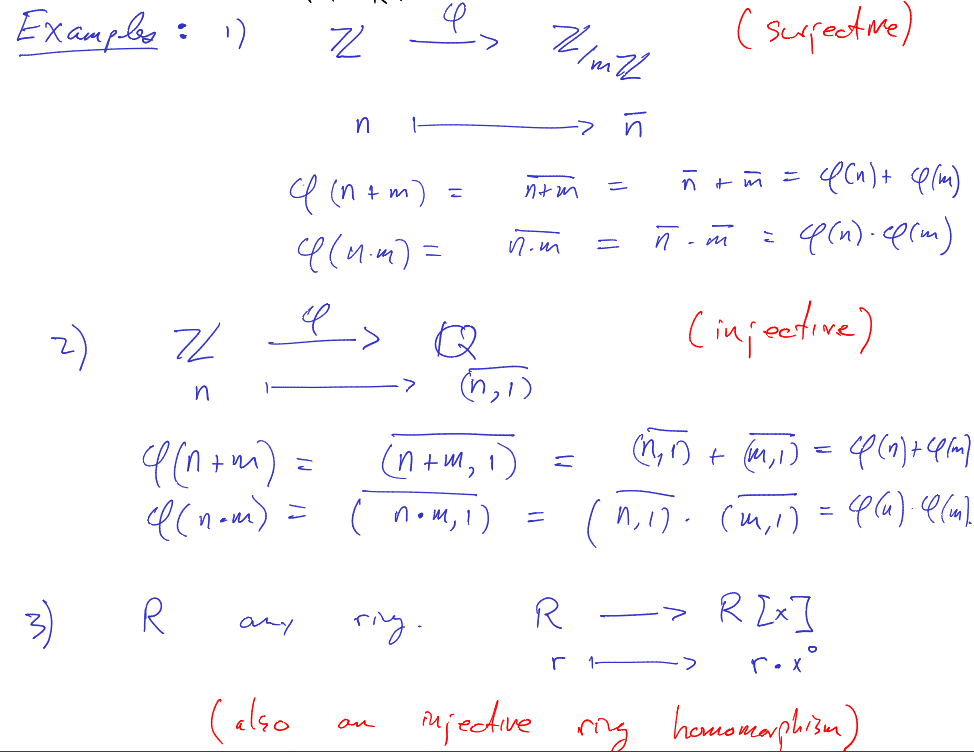 Examples : 1) ℤ —φ→ ℤ/mℤ (surjective)
n ⟼ n̅
φ(n+m) = \overline{n+m} = n̅ + m̅ = φ(n) + φ(m)
φ(n·m) = \overline{n·m} = n̅ · m̅ = φ(n)·φ(m)
2) ℤ —φ→ ℚ (injective)
n ⟼ \overline{(n,1)}
φ(n+m) = \overline{(n+m, 1)} = \overline{(n,1)} + \overline{(m,1)} = φ(n)+φ(m)
φ(n·m) = \overline{(n·m,1)} = \overline{(n,1)} · \overline{(m,1)} = φ(n)·φ(m).
3) R any ring. R ⟶ R[x]
r ⟼ r·x⁰
(also an injective ring homomorphism)